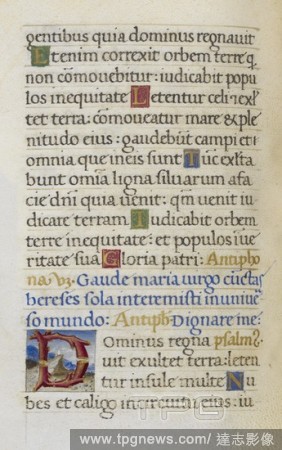 gentibus quia dominus regnauit
Etenim correxit orbem terre q
non comouebitur: iudicabit popu
los inequitate Letentur celi ⁊ exl
tet terra: comoueatur mare ⁊ ple
nitudo eius: gaudebūt campi et i
omnia que ineis sunt Tūc exlta
bunt omīa ligna siluarum afa
cie dnī quia uenit: qm̄ uenit iu
dicare terram Iudicabit orbem
terre inequitate: et populos iue
ritate sua Gloria patri: Antipho
na Gaude maria uirgo cūctas
hereses sola interemisti inuniue
so mundo: Antiph Dignare me:
Dominus regna psalm⁹
uit exultet terra: leten
tur insule multe Nu
bes et caligo incircuitu eius: iu
TPG
www.tpgnews.com / 達志影像